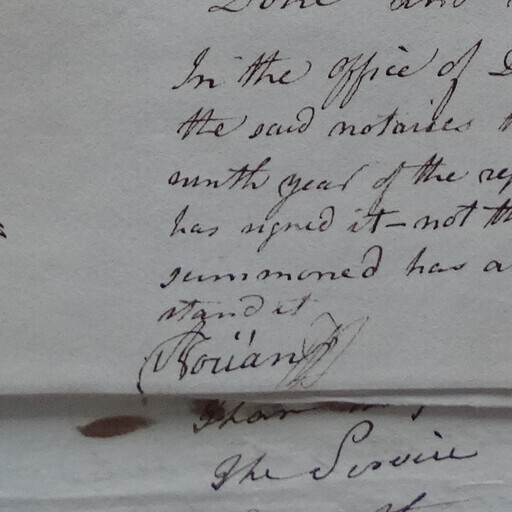 Done and
In the office of D
the said notaries
ninth year of the rep
has signed it - not th
summoned has a
stand it
The Service